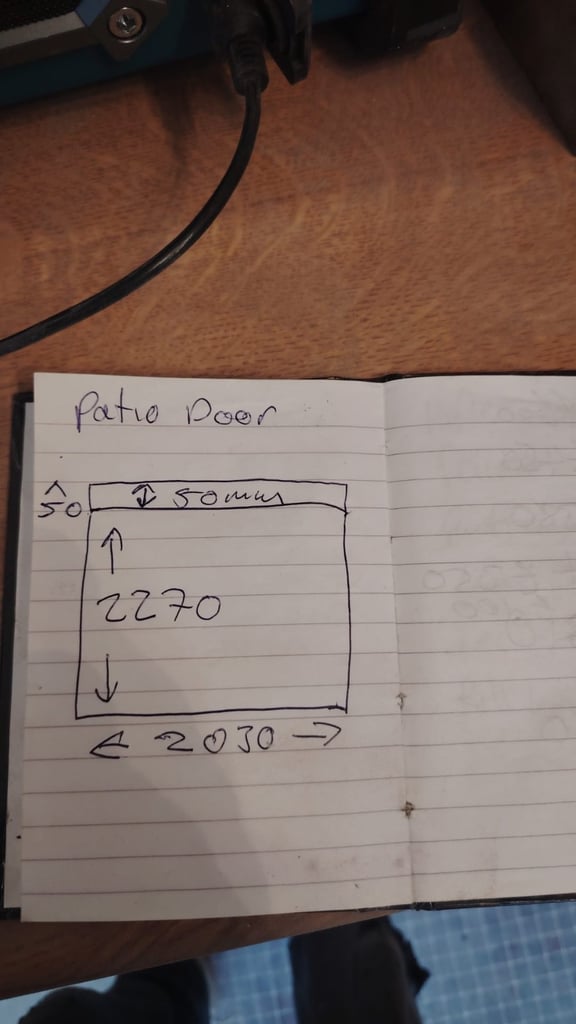 Patio Door
50 50mm
2270
2030